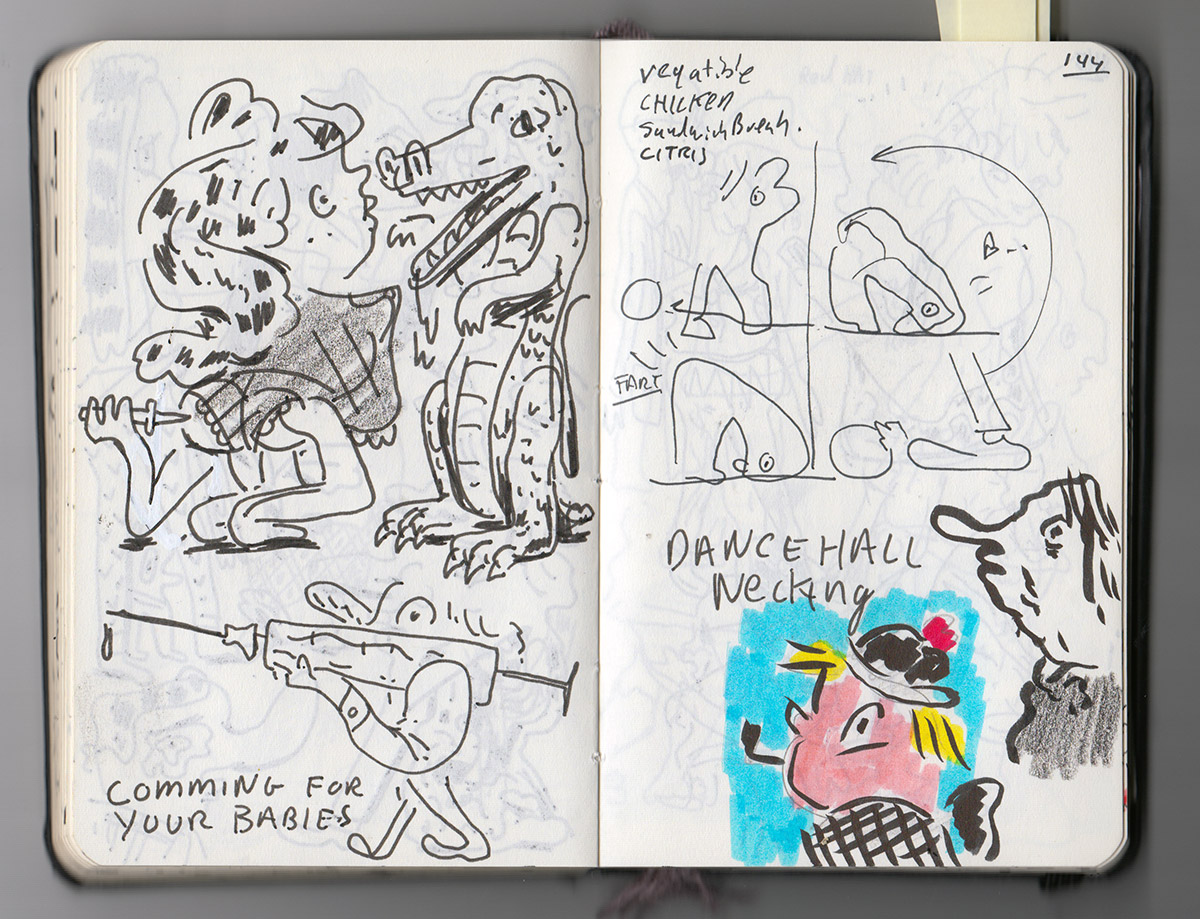 COMMING FOR
YOUR BABIES
144
vegatible
CHICKEN
Sandwich Breah.
CITRIS
B...
FART
DANCEHALL
Necking